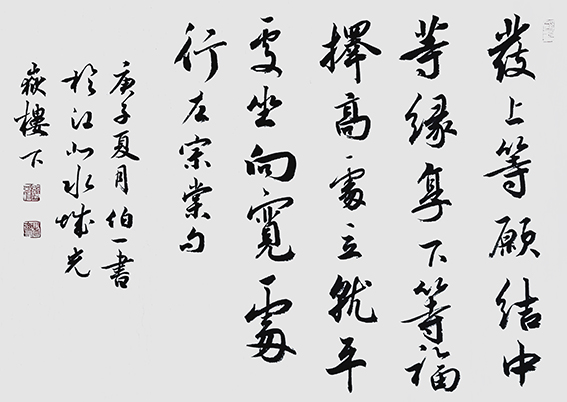 發上等願結中
等緣享下等福
擇高處立就平
處坐向寬處
行左宗棠句
庚子夏月伯一書
於江北水城光
嶽樓下